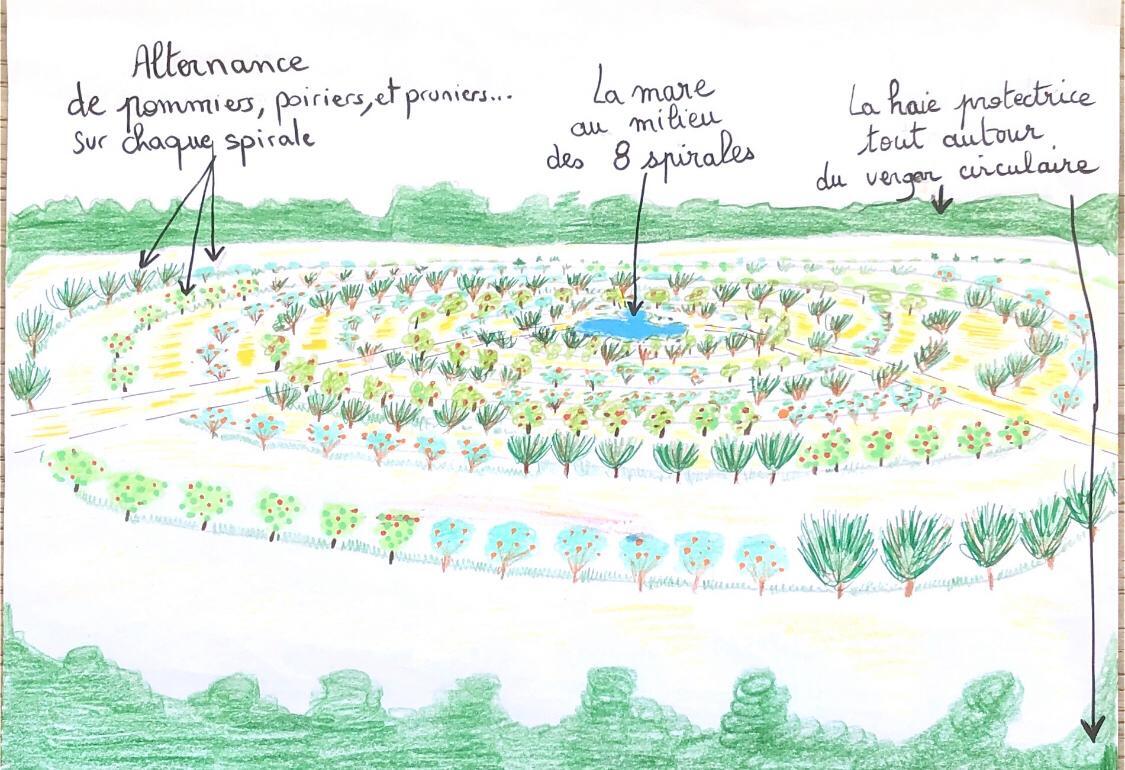 Alternance
de pommiers, poiriers, et pruniers...
sur chaque spirale
La mare
au milieu
des 8 spirales
La haie protectrice
tout autour
du verger circulaire